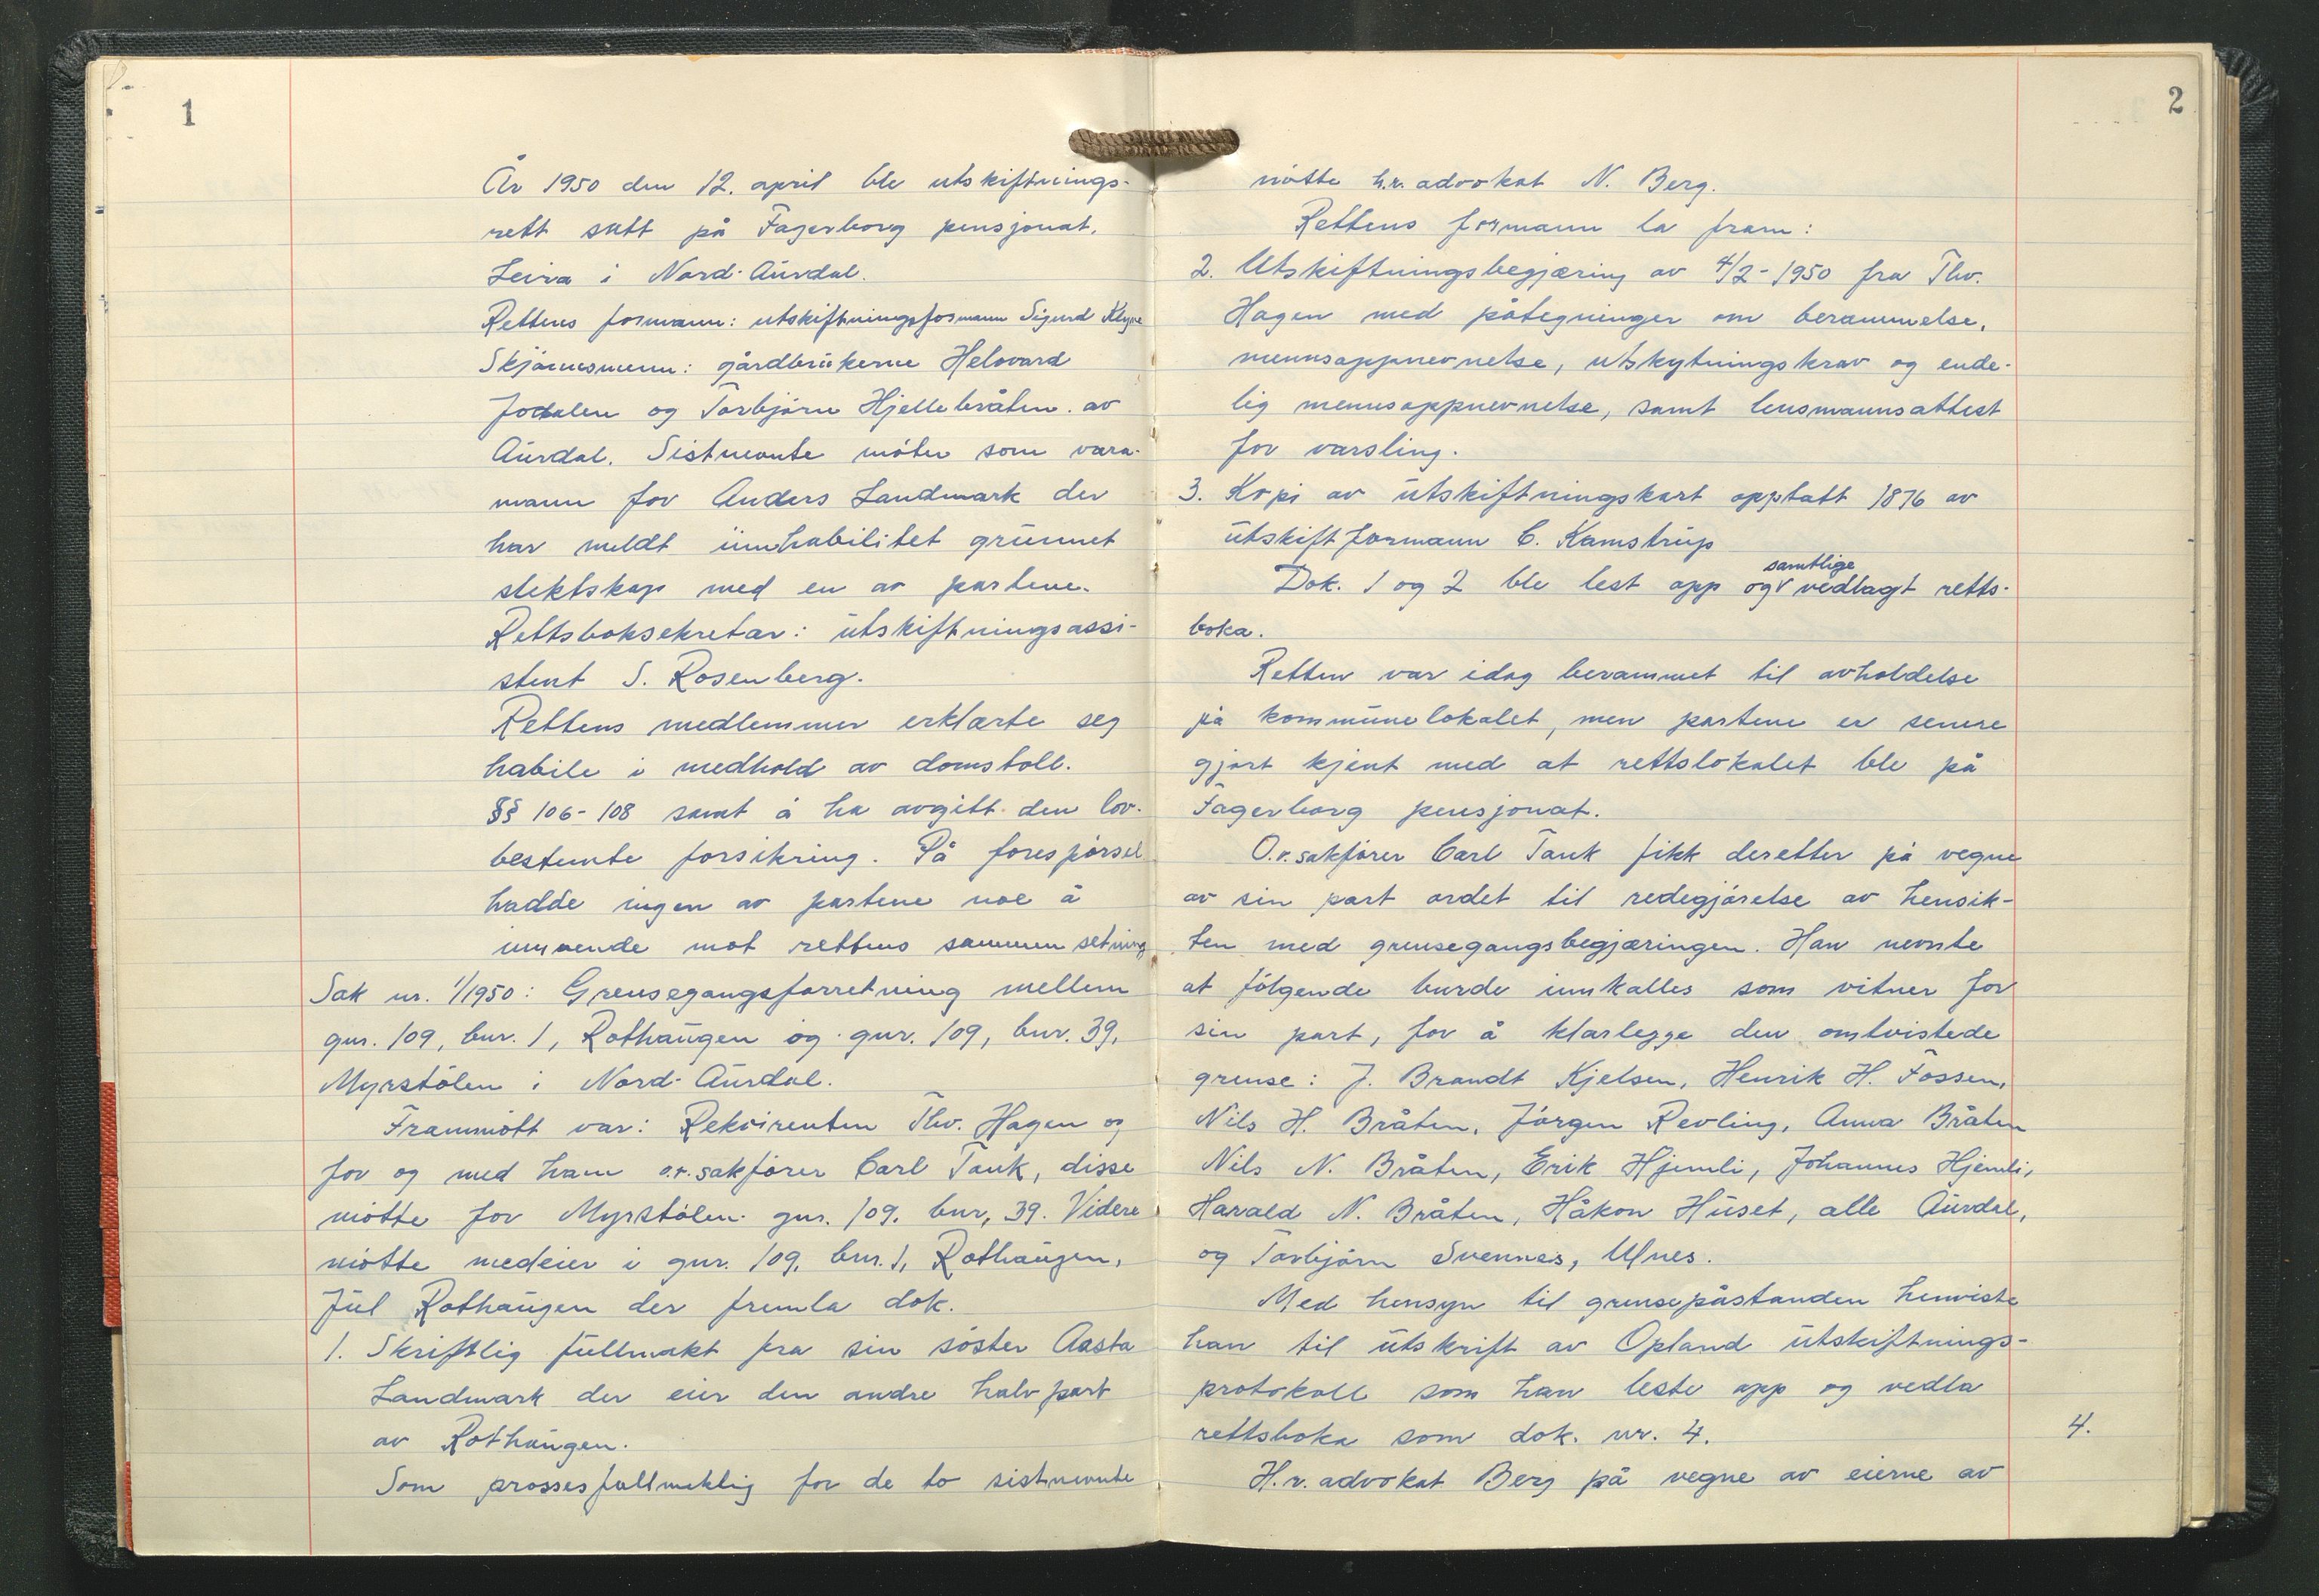 1
År 1950 den 12. april ble utskiftnings-
rett satt på Fagerborg pensjonat,
Leira i Nord-Aurdal.
Rettens formann: utskiftningsformann Sigurd
Skjønnsmenn: gårdbrukerne Helovard
Jodalen og Torbjørn Hjellebråten av
Aurdal. Sistnevnte møter som vara-
mann for Anders Landmark der
har meldt innhabilitet grunnet
slektskap med en av partene.
Rettsboksekretær: utskiftningsassi-
stent S. Rosenberg.
Rettens medlemmer erklærte seg
habile i medhold av domstoll.
§§ 106-108 samt å ha avgitt den lov-
bestemte forsikring. På forespørsel
hadde ingen av partene noe å
innvende mot rettens sammensetning
Sak nr. 1/1950: Grensegangsforretning mellem
gnr. 109, bnr. 1, Rothaugen og gnr. 109, bnr. 39,
Myrstølen i Nord-Aurdal.
Frammøtt var: Rekvirenten Thv. Hagen og
for og med ham o.r.sakfører Carl Tank, disse
møtte for Myrstølen gnr. 109, bnr, 39. Videre
møtte medeier i gnr. 109, bnr. 1, Rothaugen,
Jul Rothaugen der fremla dok.
1. Skriftlig fullmakt fra sin søster Aasta
Landmark der eier den andre halvpart
av Rothaugen.
Som prossesfullmektig for de to sistnevnte
2
møtte h.r. advokat N. Berg.
Rettens formann la fram:
2. Utskiftningsbegjæring av 4/2-1950 fra Thv.
Hagen med påtegninger om berammelse,
mennsoppnevnelse, utskytningskrav og ende-
lig mennsoppnevnelse, samt lensmannsattest
for varsling.
3. Kopi av utskiftningskart opptatt 1876 av
utskiftformann C. Kamstrup
Dok. 1 og 2 ble lest opp og samtlige vedlagt retts-
boka.
Retten var idag berammet til avholdelse
på kommunelokalet, men partene er senere
gjort kjent med at rettslokalet ble på
Fagerborg pensjonat.
O.r.sakfører Carl Tank fikk deretter på vegne
av sin part ordet til redegjørelse av hensik-
ten med grensegangsbegjæringen. Han nevnte
at følgende burde innkalles som vitner for
sin part, for å klarlegge den omtvistede
grense: J. Brandt Kjelsen, Henrik H. Fossen,
Nils H. Bråten, Jørgen Revling, Anna Bråten
Nils N. Bråten, Erik Hjemli, Johannes Hjemli,
Harald N. Bråten, Håkon Huset, alle Aurdal,
og Torbjørn Svennes, Ulnes.
Med hensyn til grensepåstanden henviste
han til utskrift av Opland utskiftnings-
protokoll som han leste opp og vedla
rettsboka som dok. nr. 4.
4.
H.r. advokat Berg på vegne av eierne av